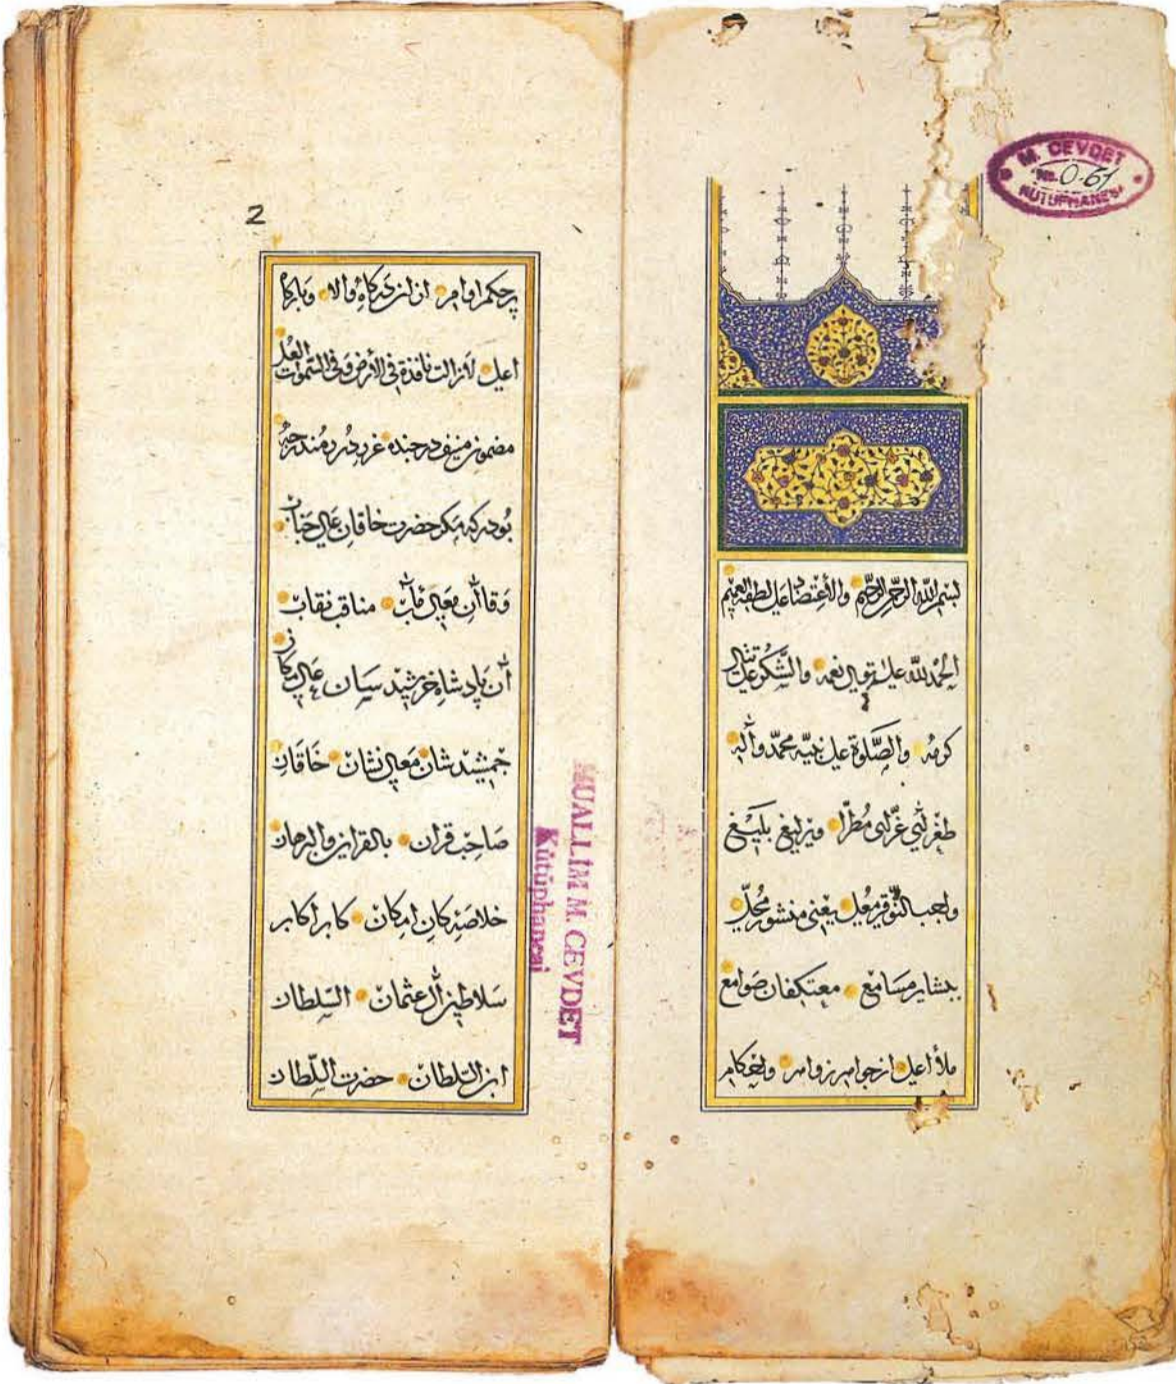 M. CEVDET
No. O-61
KÜTÜPHANESİ
بسم الله الرحمن الرحيم والاعتضاد على لطفه العميم
الحمد لله على توالى نعمه والشكر على تتالى
كرمه والصلوة على نبيه محمد وآله
طغراى غراى مطرا ويرليغ بليغ
واجب التوقير معلى يعنى منشور مجلى
بشاير مسامع معتكفان صوامع
ملأ اعلى از جواهر زواهر واحكام
2
پر حكم اوامر ان از دركاه والا وباركاه
اعلى لازالت نافذة فى الأرض وفى السموات العلى
مضمون منيف در جنده غرر درر مندرجه
بودر كه مكر حضرت خاقان عالى جناب
وقاآن معالى مآب مناقب نقاب
آن پادشاه خرشيد سان عالى مكان
جمشيد شان معالى نشان خاقان
صاحب قران بالقران والبرهان
خلاصه كان امكان كابر اكابر
سلاطين آل عثمان السلطان
ابن السلطان حضرت السلطان
MUALLİM M. CEVDET
Kütüphanesi